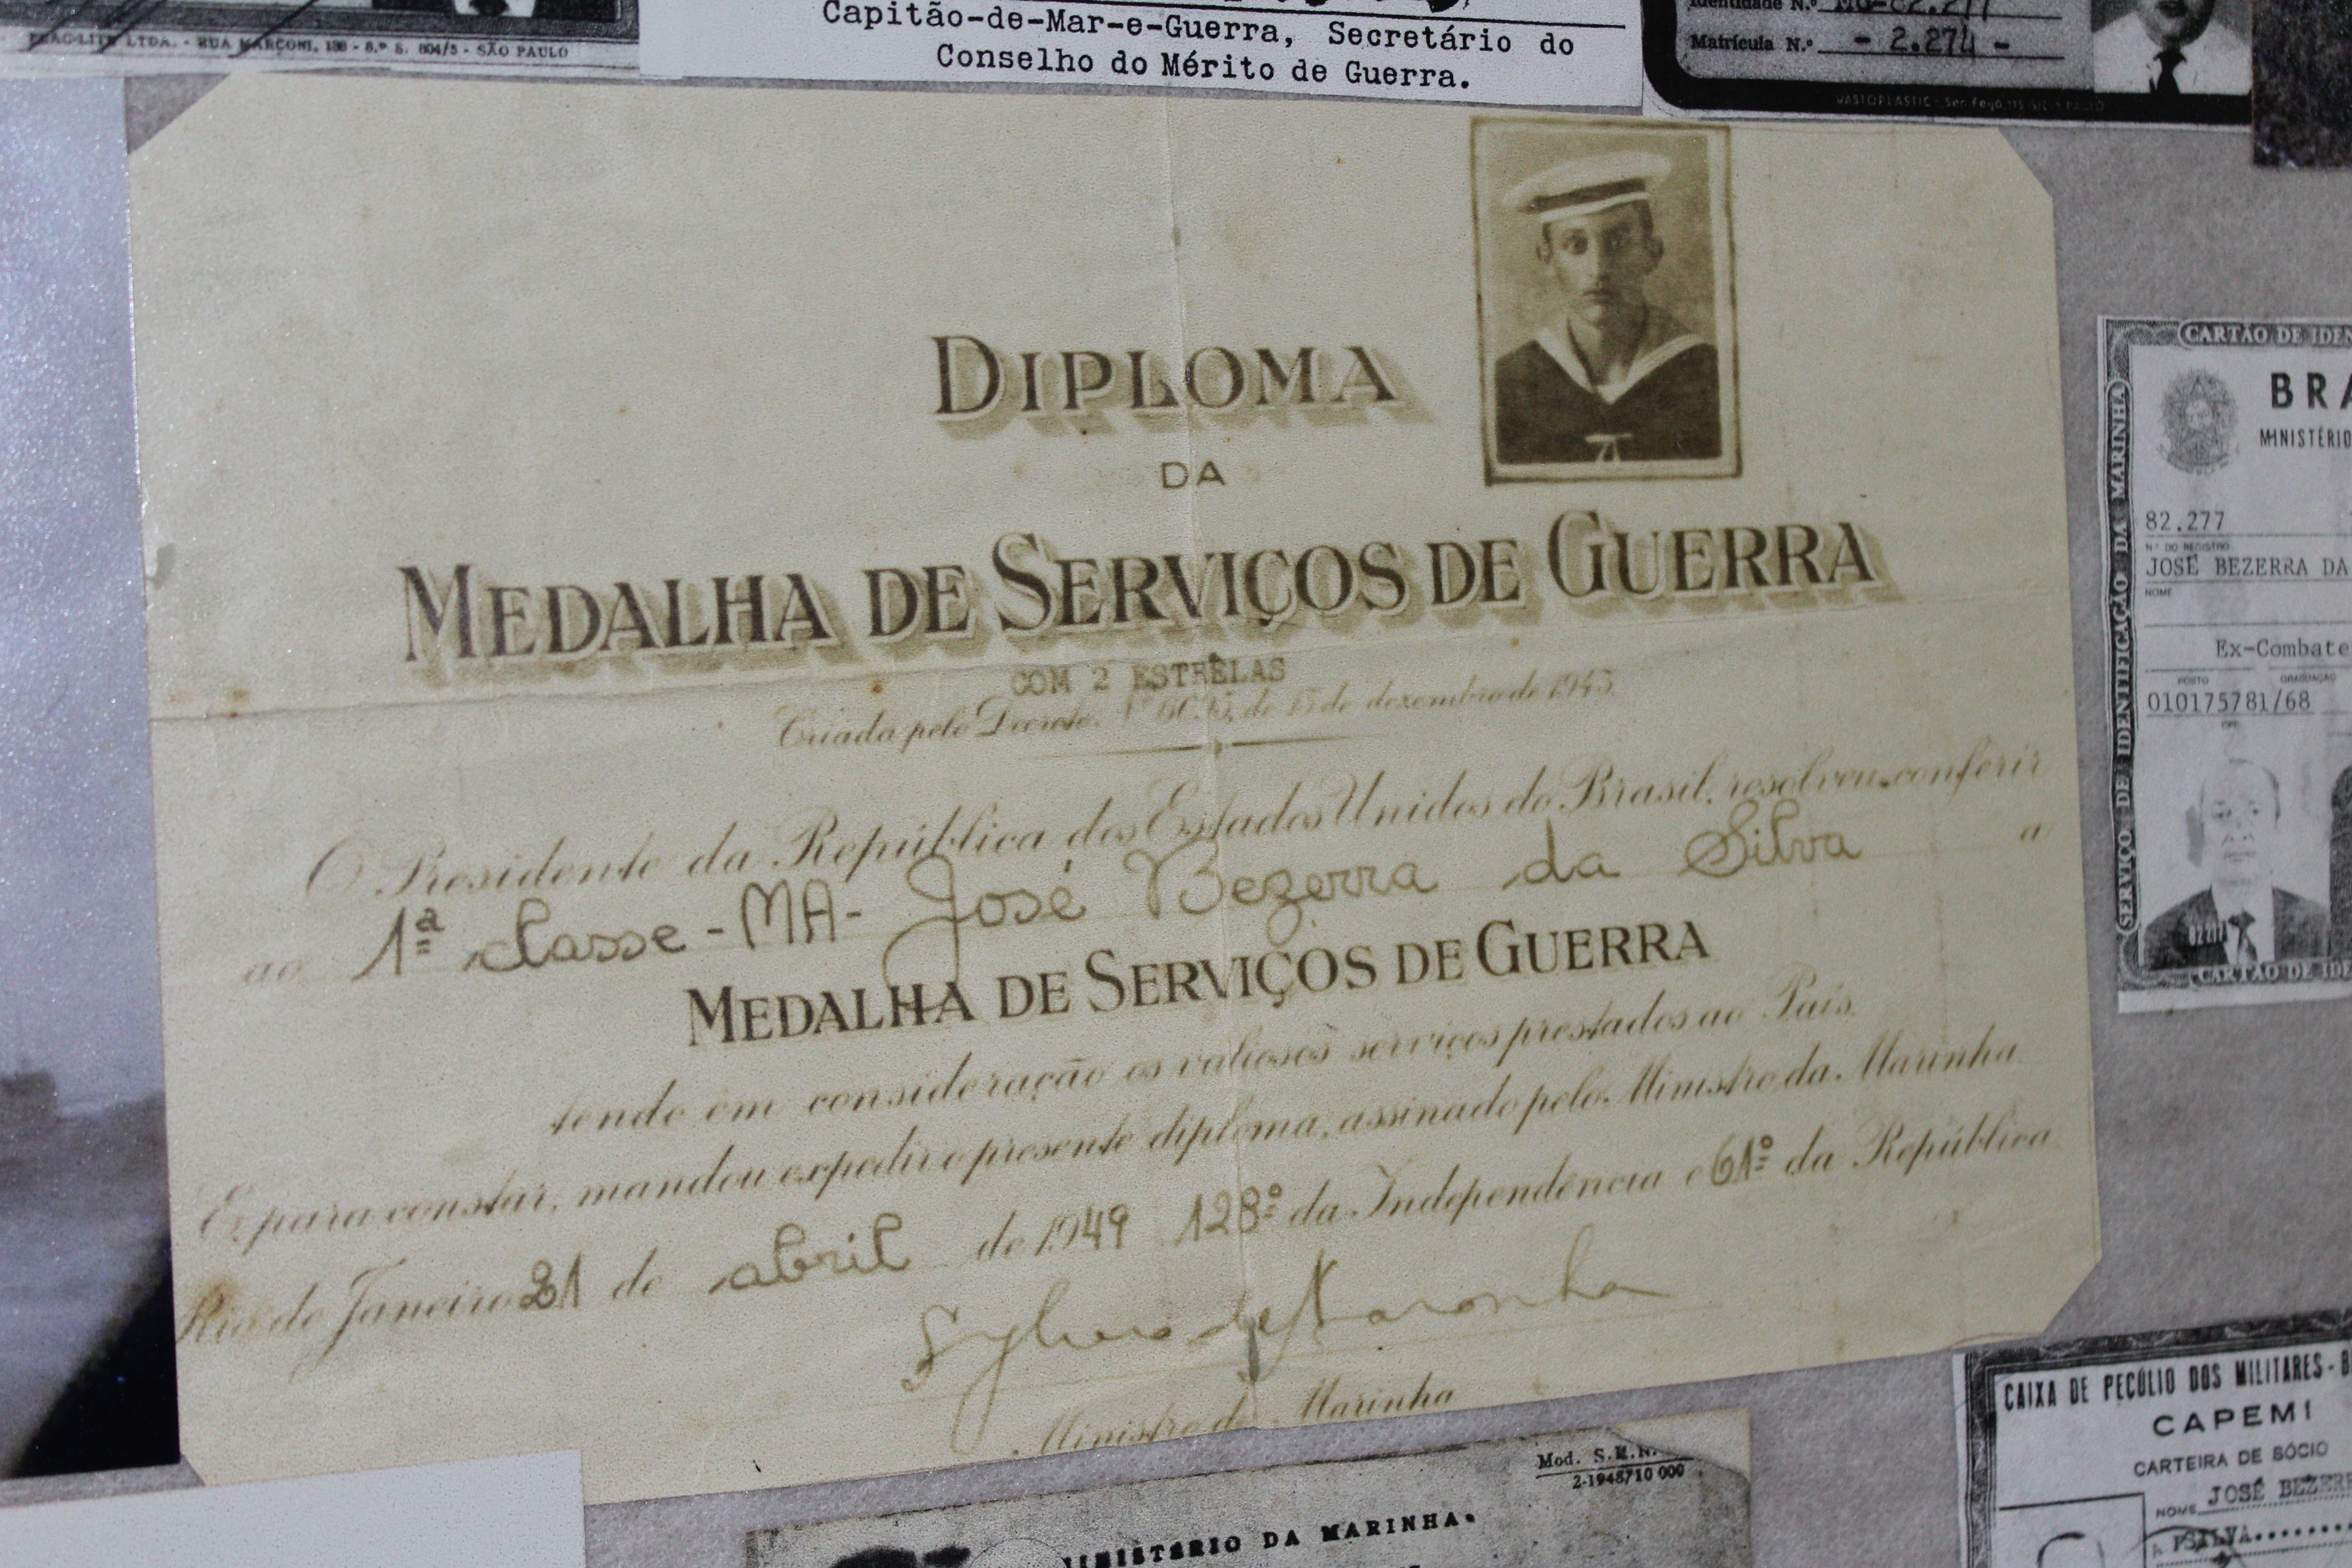 FRAC-LITE LTDA. - RUA MARCONI, 138 - 8.º S. 804/5 - SÃO PAULO
Capitão-de-Mar-e-Guerra, Secretário do
Conselho do Mérito de Guerra.
Identidade N.º
Matrícula N.º - 2.274 -
DIPLOMA
DA
MEDALHA DE SERVIÇOS DE GUERRA
COM 2 ESTRELAS
Criada pelo Decreto de dezembro de 1943
O Presidente da República dos Estados Unidos do Brasil, resolveu conferir
ao 1ª classe - MA - José Bezerra da Silva a
MEDALHA DE SERVIÇOS DE GUERRA
tendo em consideração os valiosos serviços prestados ao País.
E, para constar, mandou expedir o presente diploma, assinado pelo Ministro da Marinha.
Rio de Janeiro 21 de abril de 1949 128º da Independência e 61º da República
Sylvio de Noronha
Ministro da Marinha
CARTÃO DE IDEN
SERVIÇO DE IDENTIFICAÇÃO DA MARINHA
BRA
MINISTÉRIO
82.277
Nº DO REGISTRO
JOSÉ BEZERRA DA
NOME
Ex-Combate
POSTO GRADUAÇÃO
010175781/68
CPF
82277
CARTÃO DE IDE
Mod. S.E.N.
2-1948/10 000
MINISTÉRIO DA MARINHA
CAIXA DE PECÚLIO DOS MILITARES - B
CAPEMI
CARTEIRA DE SÓCIO
NOME JOSÉ BEZERR
SILVA